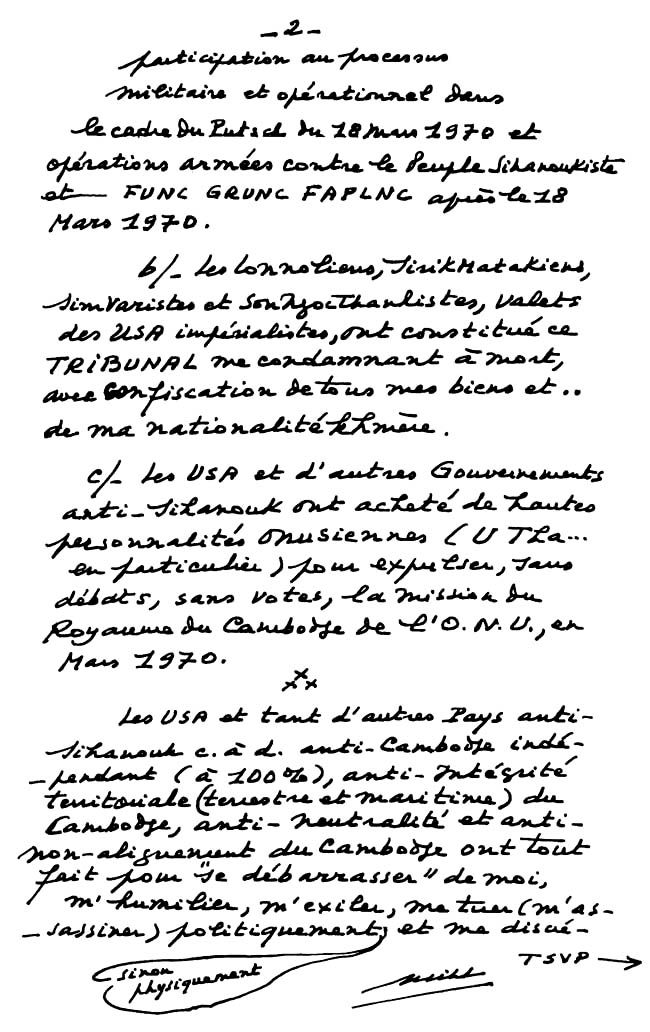 - 2 -
participation au processus
militaire et opérationnel dans
le cadre du Putsch du 18 Mars 1970 et
opérations armées contre le Peuple Sihanoukiste
et FUNC GRUNC FAPLNC après le 18
Mars 1970.
b/- Les Lonnoliens, Sirik Matakiens,
Sim Varistes et Son Ngoc Thanhistes, valets
des USA impérialistes, ont constitué ce
TRIBUNAL me condamnant à mort,
avec confiscation de tous mes biens et ..
de ma nationalité khmère.
c/- Les USA et d'autres Gouvernements
anti-Sihanouk ont acheté de hautes
personnalités onusiennes (U Tha...
en particulier) pour expulser, sans
débats, sans votes, la mission du
Royaume du Cambodge de l'O.N.U., en
Mars 1970.
xxx
Les USA et tant d'autres Pays anti-
Sihanouk c. à d. anti-Cambodge indé-
-pendant (à 100%), anti-Intégrité
territoriale (terrestre et maritime) du
Cambodge, anti-neutralité et anti-
non-alignement du Cambodge ont tout
fait pour "se débarrasser" de moi,
m'humilier, m'exiler, me tuer (m'as-
-sassiner) politiquement, et me discré-
sinon
physiquement
TSVP →